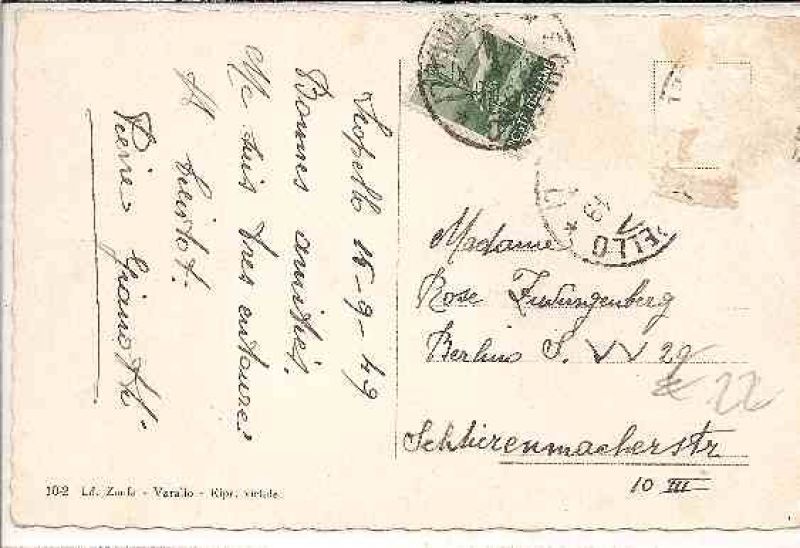 Scopello 15-9-49
Bonnes amitiés.
Me suis tres entouré
A bientot.
Pierre Gianotti
Madame
Rose Zwungenberg
Berlino S. W 29
Schlierenmacherstr
10 III
22
ELLO
10-2 Ed. Zanfa - Varallo - Ripr. vietate